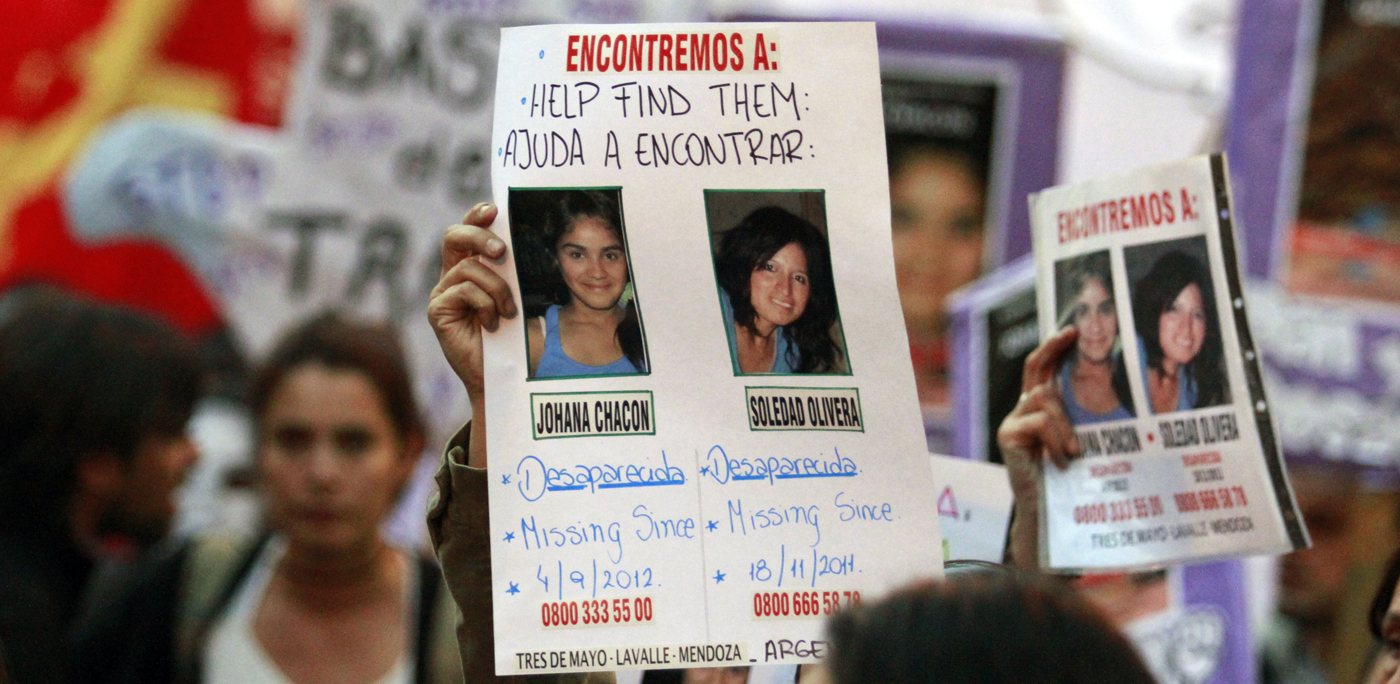 ENCONTREMOS A:
HELP FIND THEM:
AJUDA A ENCONTRAR:
JOHANA CHACON
SOLEDAD OLIVERA
Desaparecida
Desaparecida.
Missing Since
Missing Since.
4/9/2012.
18/11/2011.
0800 333 55 00
0800 666 58 78
TRES DE MAYO - LAVALLE - MENDOZA - ARGE
ENCONTREMOS A:
CHACON • SOLEDAD OLIVERA
0800 333 55 00 0800 666 58 78
TRES DE MAYO - LAVALLE - MENDOZA
BAS
de
TRA